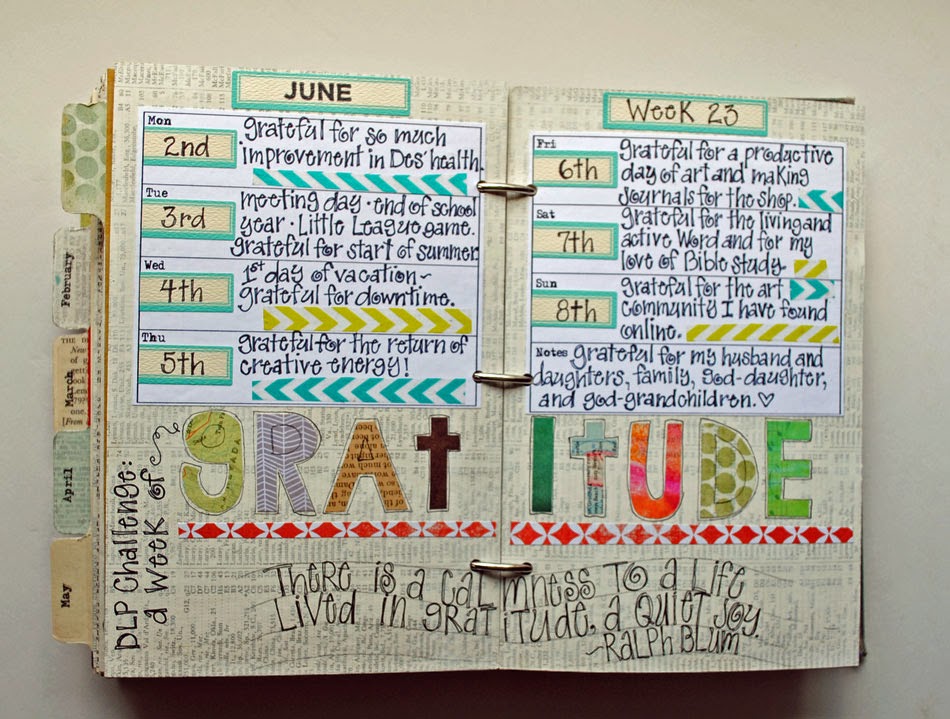 JUNE
Mon
2nd
grateful for so much
improvement in Des' health.
Tue
3rd
meeting day · end of school
year · Little League game.
grateful for start of summer
Wed
4th
1st day of vacation~
grateful for downtime.
Thu
5th
grateful for the return of
creative energy!
Week 23
Fri
6th
grateful for a productive
day of art and making
journals for the shop.
Sat
7th
grateful for the living and
active Word and for my
love of Bible study.
Sun
8th
grateful for the art
community I have found
online.
Notes
grateful for my husband and
daughters, family, god-daughter,
and god-grandchildren.♡
DLP Challenge:
a week of
gRAtITUDE
There is a calmness to a life
lived in gratitude, a quiet joy.
~Ralph Blum
February
March
April
May